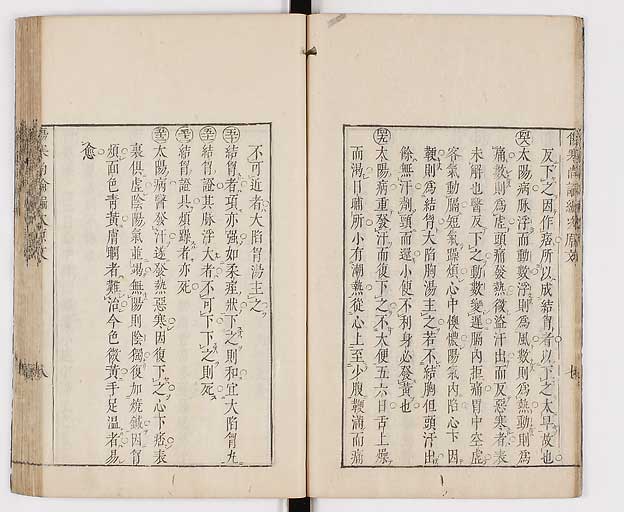 反下之因作痞所以成結胷者以下之太早故也
太陽病脉浮而動數浮則為風數則為熱動則為
痛數則為虛頭痛發熱微盜汗出而反惡寒者表
未解也醫反下之動數變遲膈內拒痛胃中空虛
客氣動膈短氣躁煩心中懊憹陽氣內陷心下因
鞕則為結胷大陷胸湯主之若不結胸但頭汗出
餘無汗劑頸而還小便不利身必發黃也
太陽病重發汗而復下之不大便五六日舌上燥
而渴日晡所小有潮熱從心上至少腹鞕滿而痛
不可近者大陷胷湯主之
結胷者項亦强如柔痙狀下之則和宜大陷胷丸
結胷證其脉浮大者不可下下之則死
結胷證具煩躁者亦死
太陽病醫發汗遂發熱惡寒因復下之心下痞表
裏俱虛陰陽氣並竭無陽則陰獨復加燒鍼因胷
煩面色青黃膚瞤者難治今色微黃手足溫者易
愈